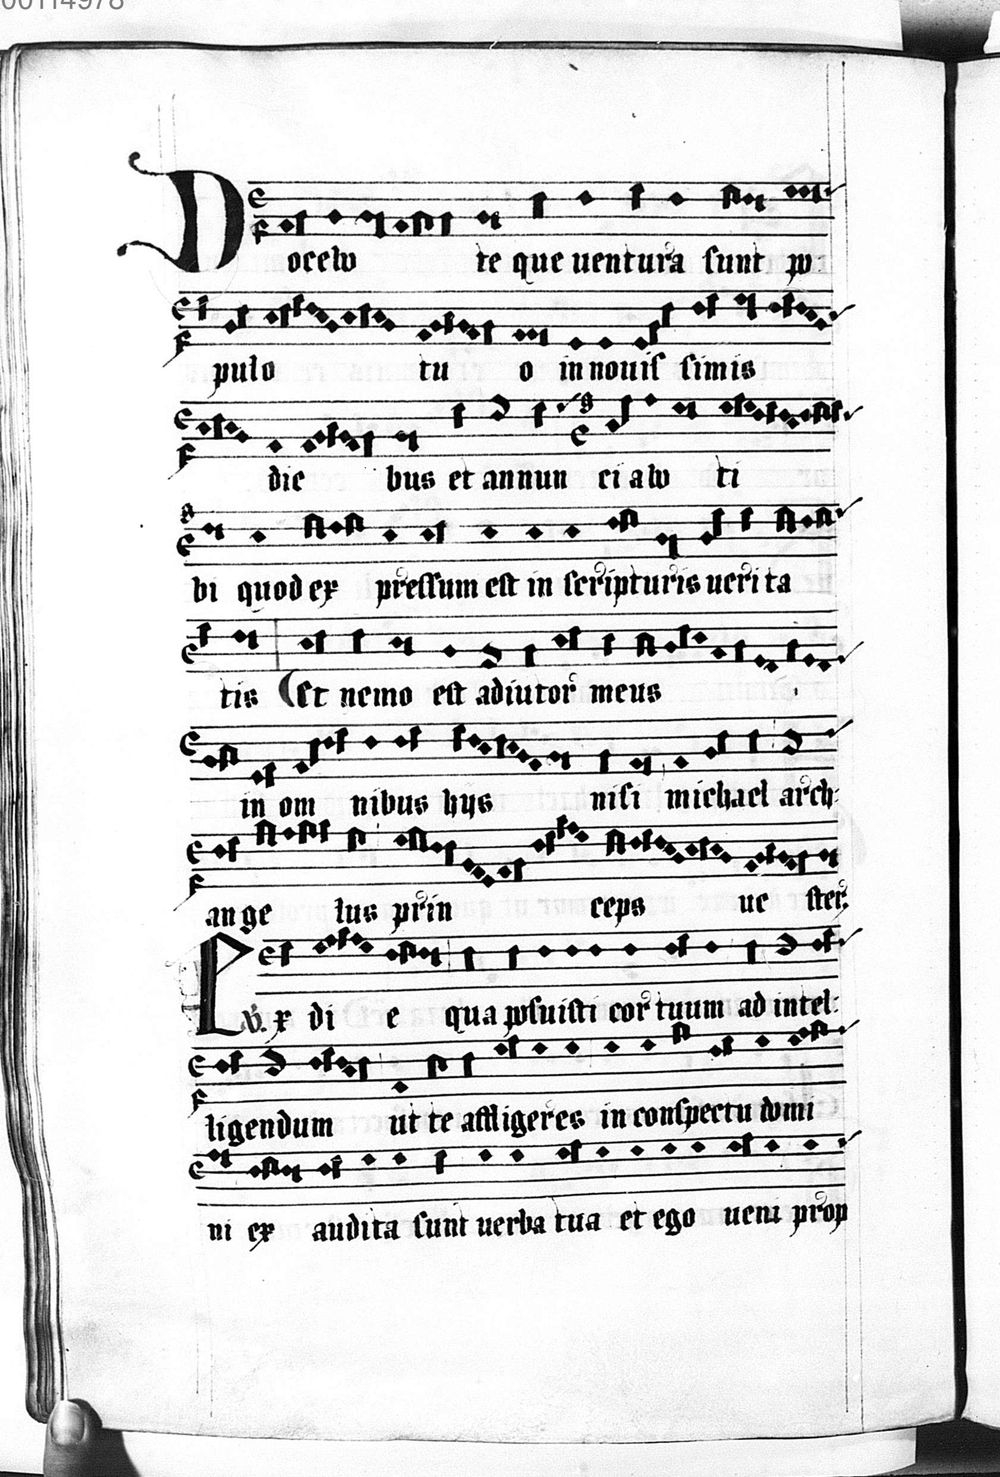 00114978
Docebo te que uentura sunt po
pulo tu o in nouis simis
die bus et annun ci abo ti
bi quod ex pressum est in scripturis ueri ta
tis Et nemo est adiutor meus
in om nibus hys nisi michael arch
an ge lus prin ceps ue ster
V. Ex di e qua posuisti cor tuum ad intel
ligendum ut te affligeres in conspectu domi
ni ex audita sunt uerba tua et ego ueni prop